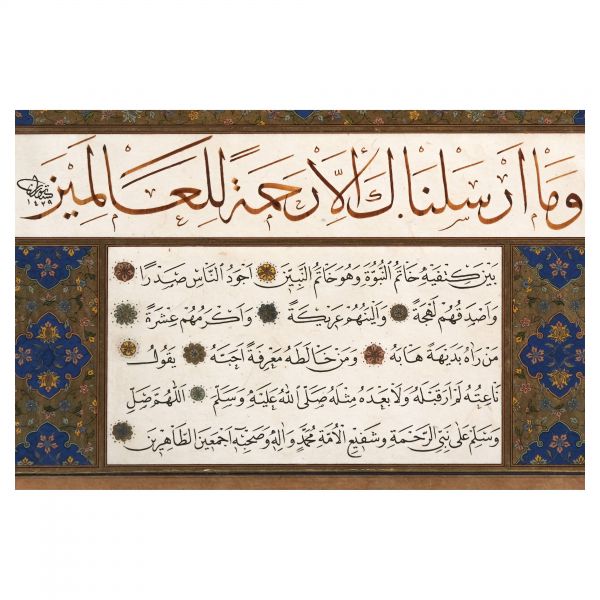 وَمَا أَرْسَلْنَاكَ إِلَّا رَحْمَةً لِلْعَالَمِينَ
١٤٢٩
بَيْنَ كَتِفَيْهِ خَاتَمُ النُّبُوَّةِ وَهُوَ خَاتَمُ النَّبِيِّينَ أَجْوَدُ النَّاسِ صَدْرًا
وَأَصْدَقُهُمْ لَهْجَةً وَأَلْيَنُهُمْ عَرِيكَةً وَأَكْرَمُهُمْ عِشْرَةً
مَنْ رَآهُ بَدِيهَةً هَابَهُ وَمَنْ خَالَطَهُ مَعْرِفَةً أَحَبَّهُ يَقُولُ
نَاعِتُهُ لَمْ أَرَ قَبْلَهُ وَلَا بَعْدَهُ مِثْلَهُ صَلَّى اللهُ عَلَيْهِ وَسَلَّمَ اللَّهُمَّ صَلِّ
وَسَلِّمْ عَلَى نَبِيِّ الرَّحْمَةِ وَشَفِيعِ الْأُمَّةِ مُحَمَّدٍ وَآلِهِ وَصَحْبِهِ أَجْمَعِينَ الطَّاهِرِينَ